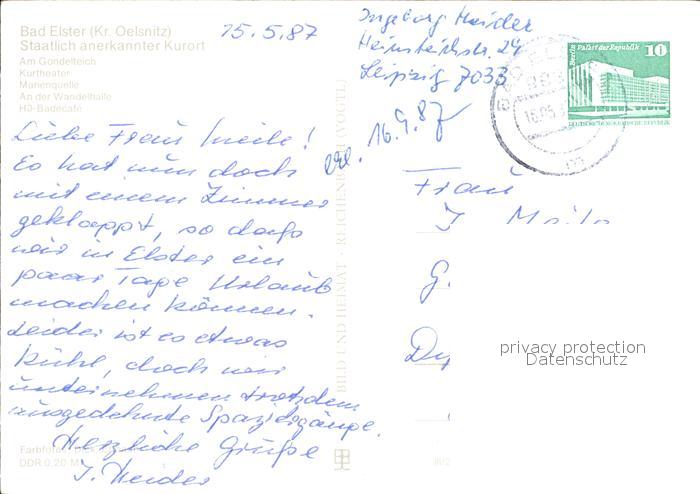 Bad Elster (Kr. Oelsnitz)
Staatlich anerkannter Kurort
Am Gondelteich
Kurtheater
Marienquelle
An der Wandelhalle
HO-Badecafé
15.5.87
Ingeborg Heider
Heinsteichstr. 24
Leipzig 7033
erl. 16.9.87
Berlin, Palast der Republik 10
DEUTSCHE DEMOKRATISCHE REPUBLIK
16.05.
Liebe Frau Meile!
Es hat nun doch
mit einem Zimmer
geklappt, so daß
wir in Elster ein
paar Tage Urlaub
machen können.
Leider ist es etwas
kühl, doch wir
unternehmen trotzdem
ausgedehnte Spaziergänge.
Herzliche Grüße
I. Heider
Frau
I.
G.
privacy protection
Datenschutz
BILD UND HEIMAT · REICHENBACH (VOGTL)
Farbfotos:
DDR 0,20 M